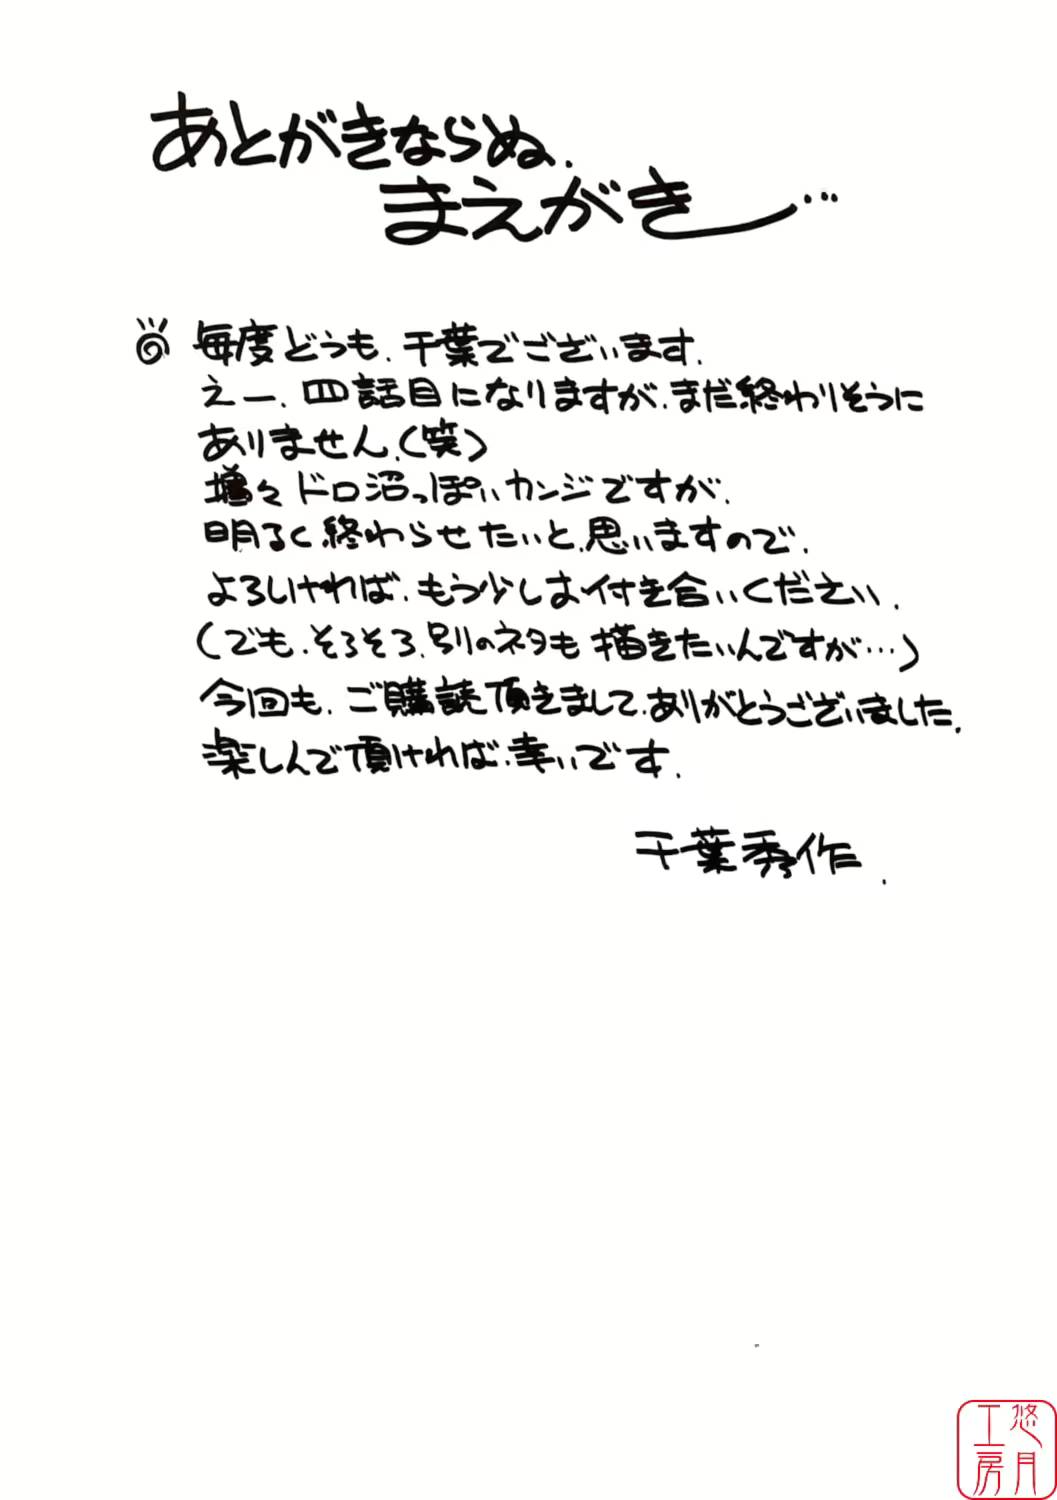 あとがきならぬ、
まえがき…
毎度どうも、千葉でございます。
えー、四話目になりますが、まだ終わりそうに
ありません。(笑)
増々ドロ沼っぽいカンジですが、
明るく終わらせたいと、思いますので、
よろしければ、もう少しお付き合いください。
(でも、そろそろ、別のネタも描きたいんですが…)
今回も、ご購読頂きまして、ありがとうございました。
楽しんで頂ければ、幸いです。
千葉秀作.
悠月
工房